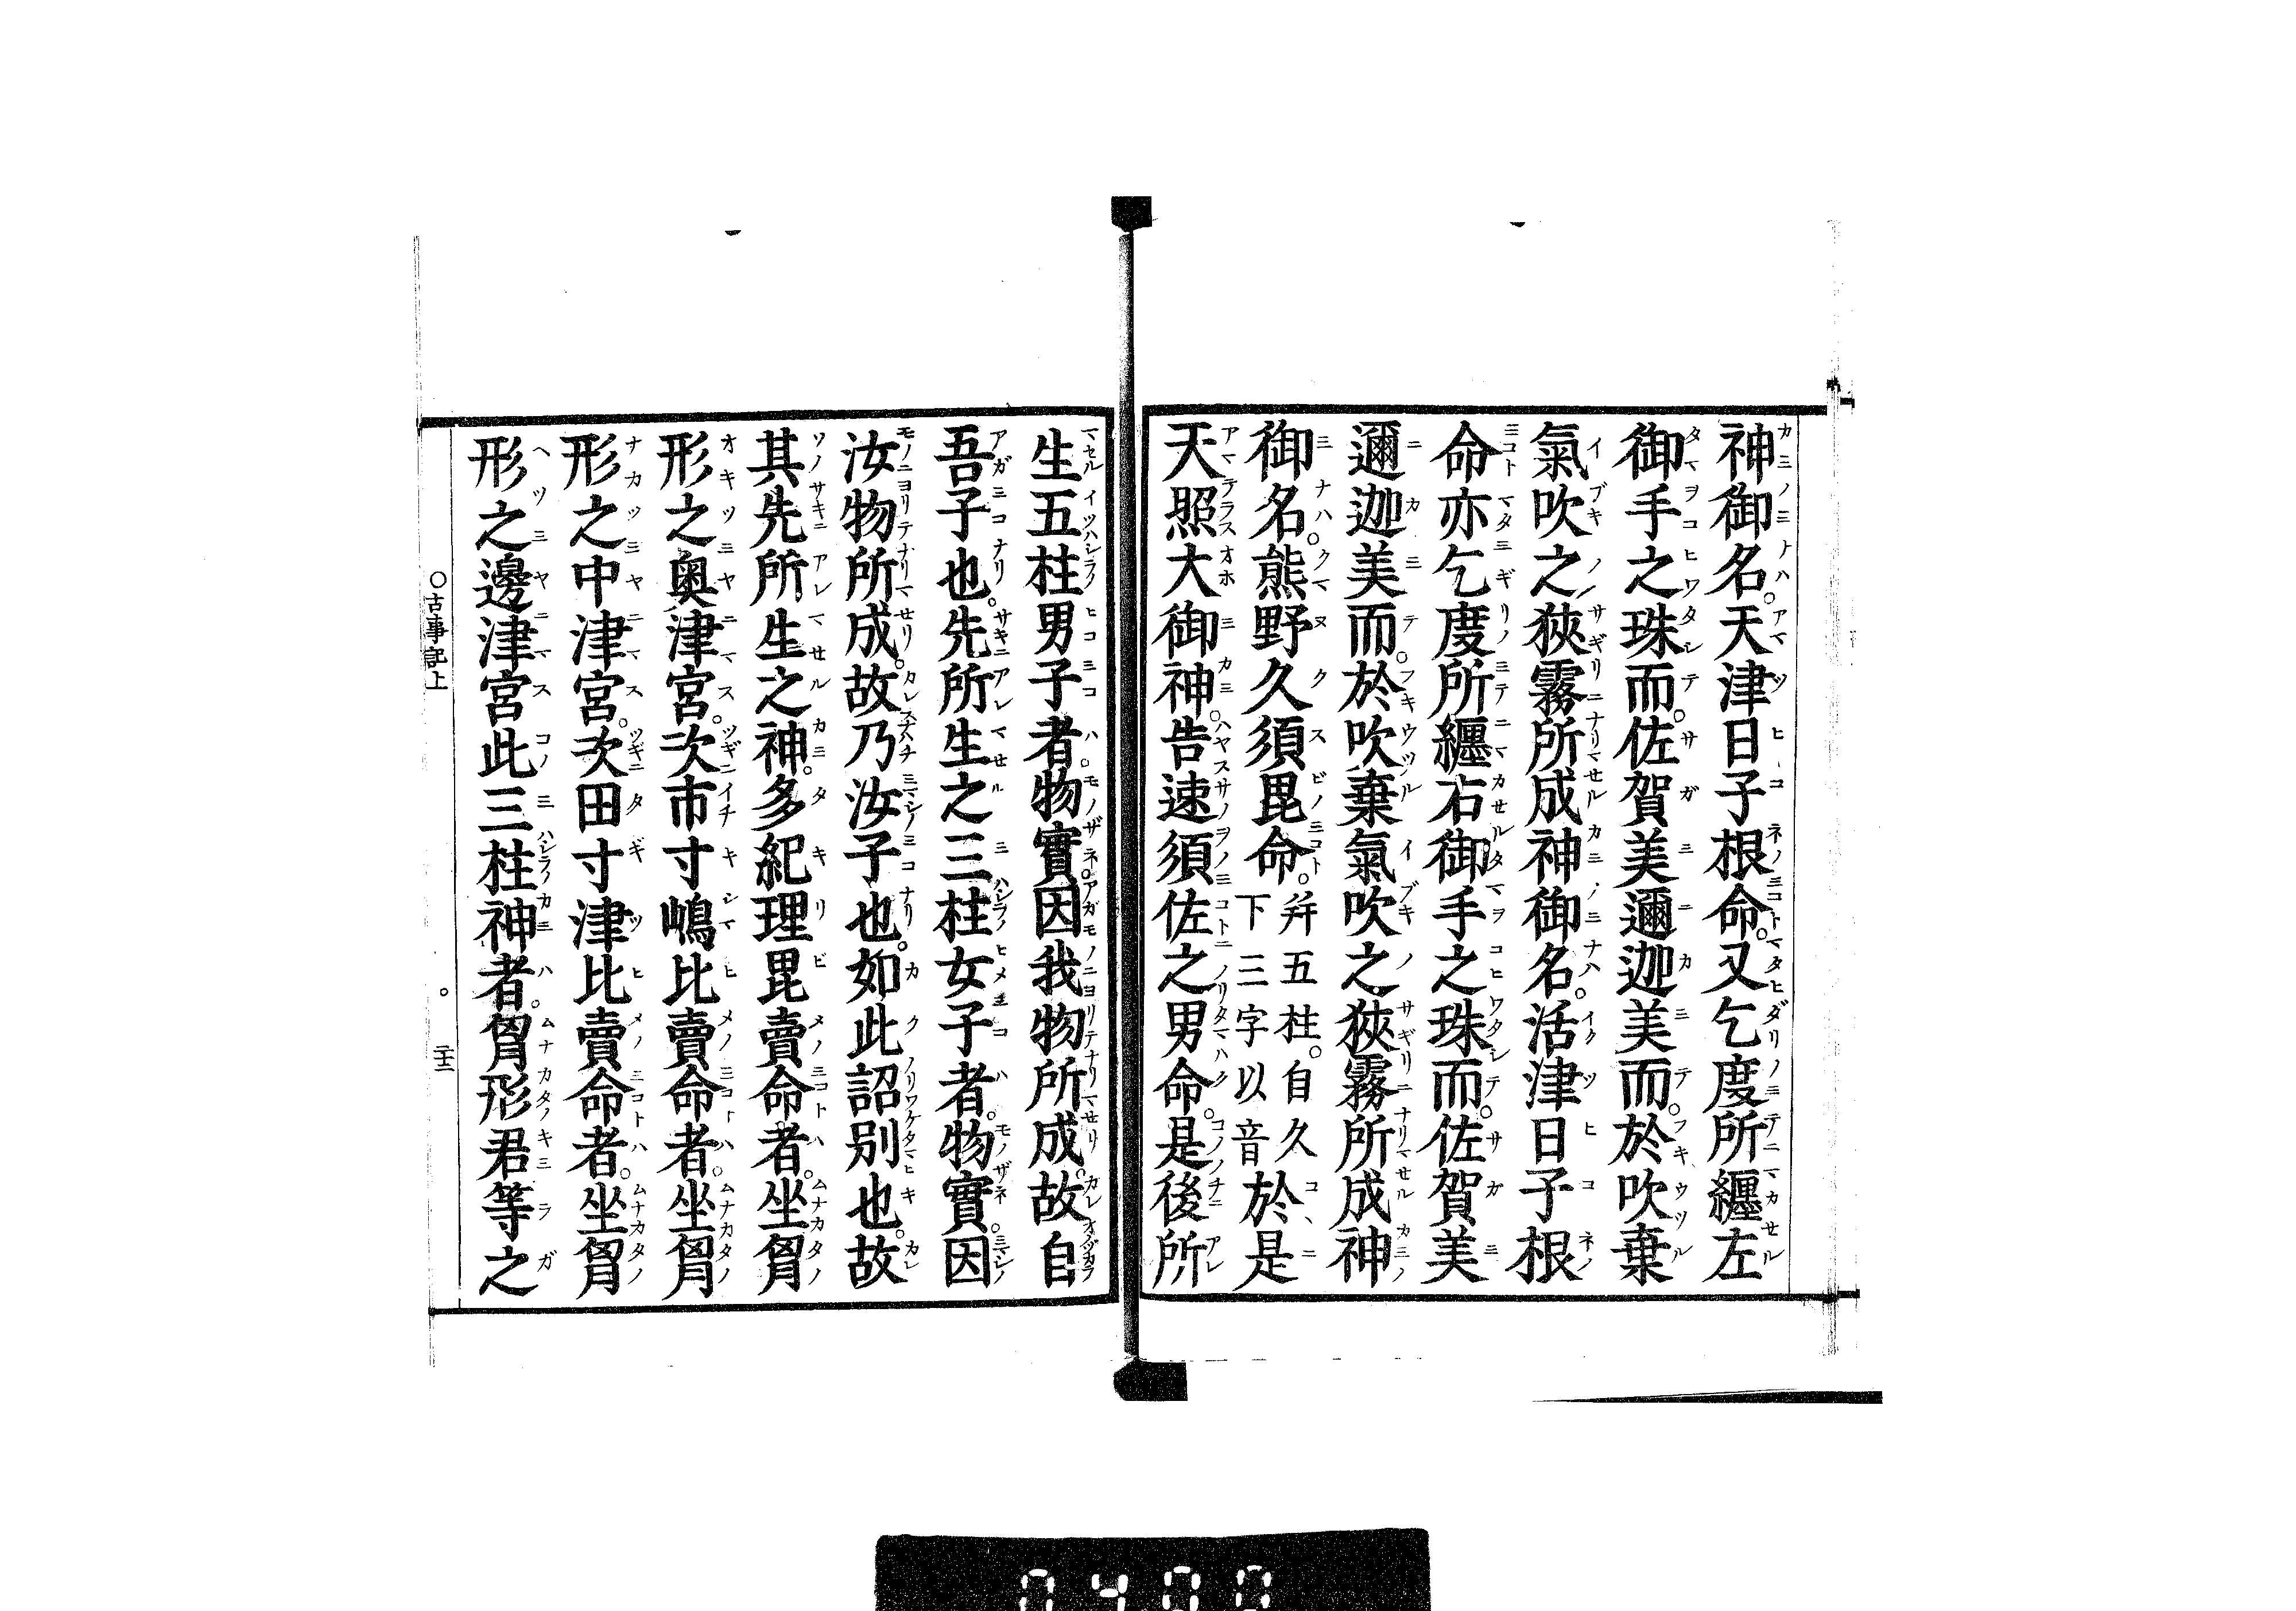 神御名。天津日子根命。又乞度所纏左
御手之珠而。佐賀美邇迦美而。於吹棄
氣吹之狹霧所成神御名。活津日子根
命亦乞度所纏右御手之珠而。佐賀美
邇迦美而。於吹棄氣吹之狹霧所成神
御名。熊野久須毘命。并五柱。自久下三字以音於是
天照大御神。告速須佐之男命。是後所
生五柱男子者。物實因我物所成。故自
吾子也。先所生之三柱女子者。物實。因
汝物所成。故乃汝子也。如此詔別也。故
其先所生之神。多紀理毘賣命者。坐胷
形之奧津宮。次市寸嶋比賣命者。坐胷
形之中津宮。次田寸津比賣命者。坐胷
形之邊津宮此三柱神者。胷形君等之
○古事記上
二十二
0400